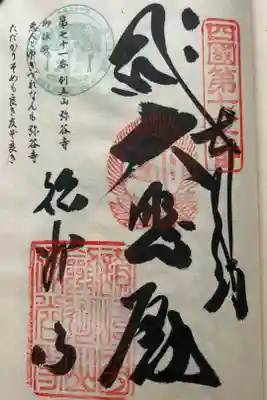 四國第七十一番
奉納
大悲殿
弥谷寺
第七十一番 剣五山 弥谷寺
御詠歌
悪人とゆきづれなんも弥谷寺
ただかりそめも良き友ぞ良き